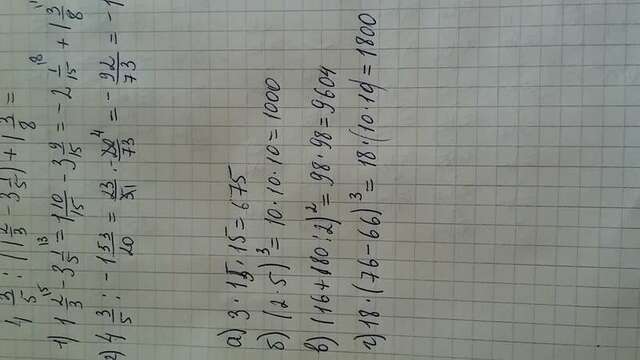 4 3/5 : (1 2/3 - 3 1/5) + 1 3/8 =
1) 1 2/3 - 3 1/5 = 1 10/15 - 3 9/15 = -2 1/15 + 1 3/8
2) 4 3/5 : -1 53/20 = 23/51 · -20/73 = -92/73 = -1
а) 3 · 15 · 15 = 675
б) (2 · 5)³ = 10 · 10 · 10 = 1000
в) (16 + 180 : 2)² = 98 · 98 = 9604
г) 18 · (76 - 66)³ = 18 · (10 · 10) = 1800